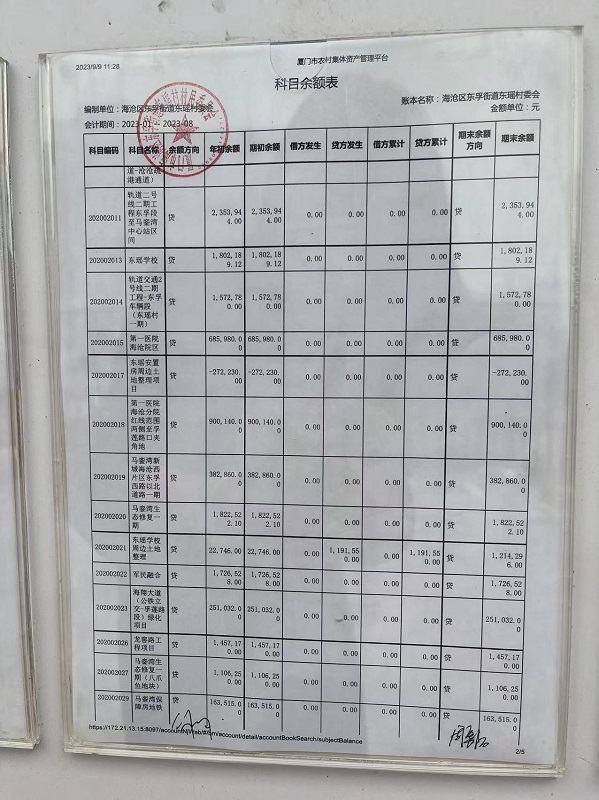 2023/9/9 11:28
厦门市农村集体资产管理平台
科目余额表
编制单位：海沧区东孚街道东瑶村委会
账本名称：海沧区东孚街道东瑶村委会
会计期间：2023-01 - 2023-08
金额单位：元
科目编码 科目名称 余额方向 年初余额 期初余额 借方发生 贷方发生 借方累计 贷方累计 期末余额方向 期末余额
港通道）
202002011 轨道二号线二期工程东孚段至马銮湾中心站区间 贷 2,353,944.00 2,353,944.00 0.00 0.00 0.00 0.00 贷 2,353,944.00
202002013 东瑶学校 贷 1,802,189.12 1,802,189.12 0.00 0.00 0.00 0.00 贷 1,802,189.12
202002014 轨道交通2号线二期工程-东孚车辆段（东瑶村一期） 贷 1,572,780.00 1,572,780.00 0.00 0.00 0.00 0.00 贷 1,572,780.00
202002015 第一医院海沧院区 贷 685,980.00 685,980.00 0.00 0.00 0.00 0.00 贷 685,980.00
202002017 东瑶安置房周边土地整理项目 贷 -272,230.00 -272,230.00 0.00 0.00 0.00 0.00 贷 -272,230.00
202002018 第一医院海沧分院红线范围两侧至孚莲路口夹角地 贷 900,140.00 900,140.00 0.00 0.00 0.00 0.00 贷 900,140.00
202002019 马銮湾新城海沧西片区东孚西路以北道路一期 贷 382,860.00 382,860.00 0.00 0.00 0.00 0.00 贷 382,860.00
202002020 马銮湾生态修复一期 贷 1,822,522.10 1,822,522.10 0.00 0.00 0.00 0.00 贷 1,822,522.10
202002021 东瑶学校周边土地整理 贷 22,746.00 22,746.00 0.00 1,191,550.00 0.00 1,191,550.00 贷 1,214,296.00
202002022 军民融合 贷 1,726,528.00 1,726,528.00 0.00 0.00 0.00 0.00 贷 1,726,528.00
202002023 海翔大道（公铁立交-孚莲路段）绿化项目 贷 251,032.00 251,032.00 0.00 0.00 0.00 0.00 贷 251,032.00
202002026 龙窖路工程项目 贷 1,457,170.00 1,457,170.00 0.00 0.00 0.00 0.00 贷 1,457,170.00
202002027 马銮湾生态修复一期（八爪鱼地块） 贷 1,106,250.00 1,106,250.00 0.00 0.00 0.00 0.00 贷 1,106,250.00
202002029 马銮湾保障房地铁 贷 163,515.00 163,515.00 0.00 0.00 0.00 0.00 贷 163,515.00
2/5